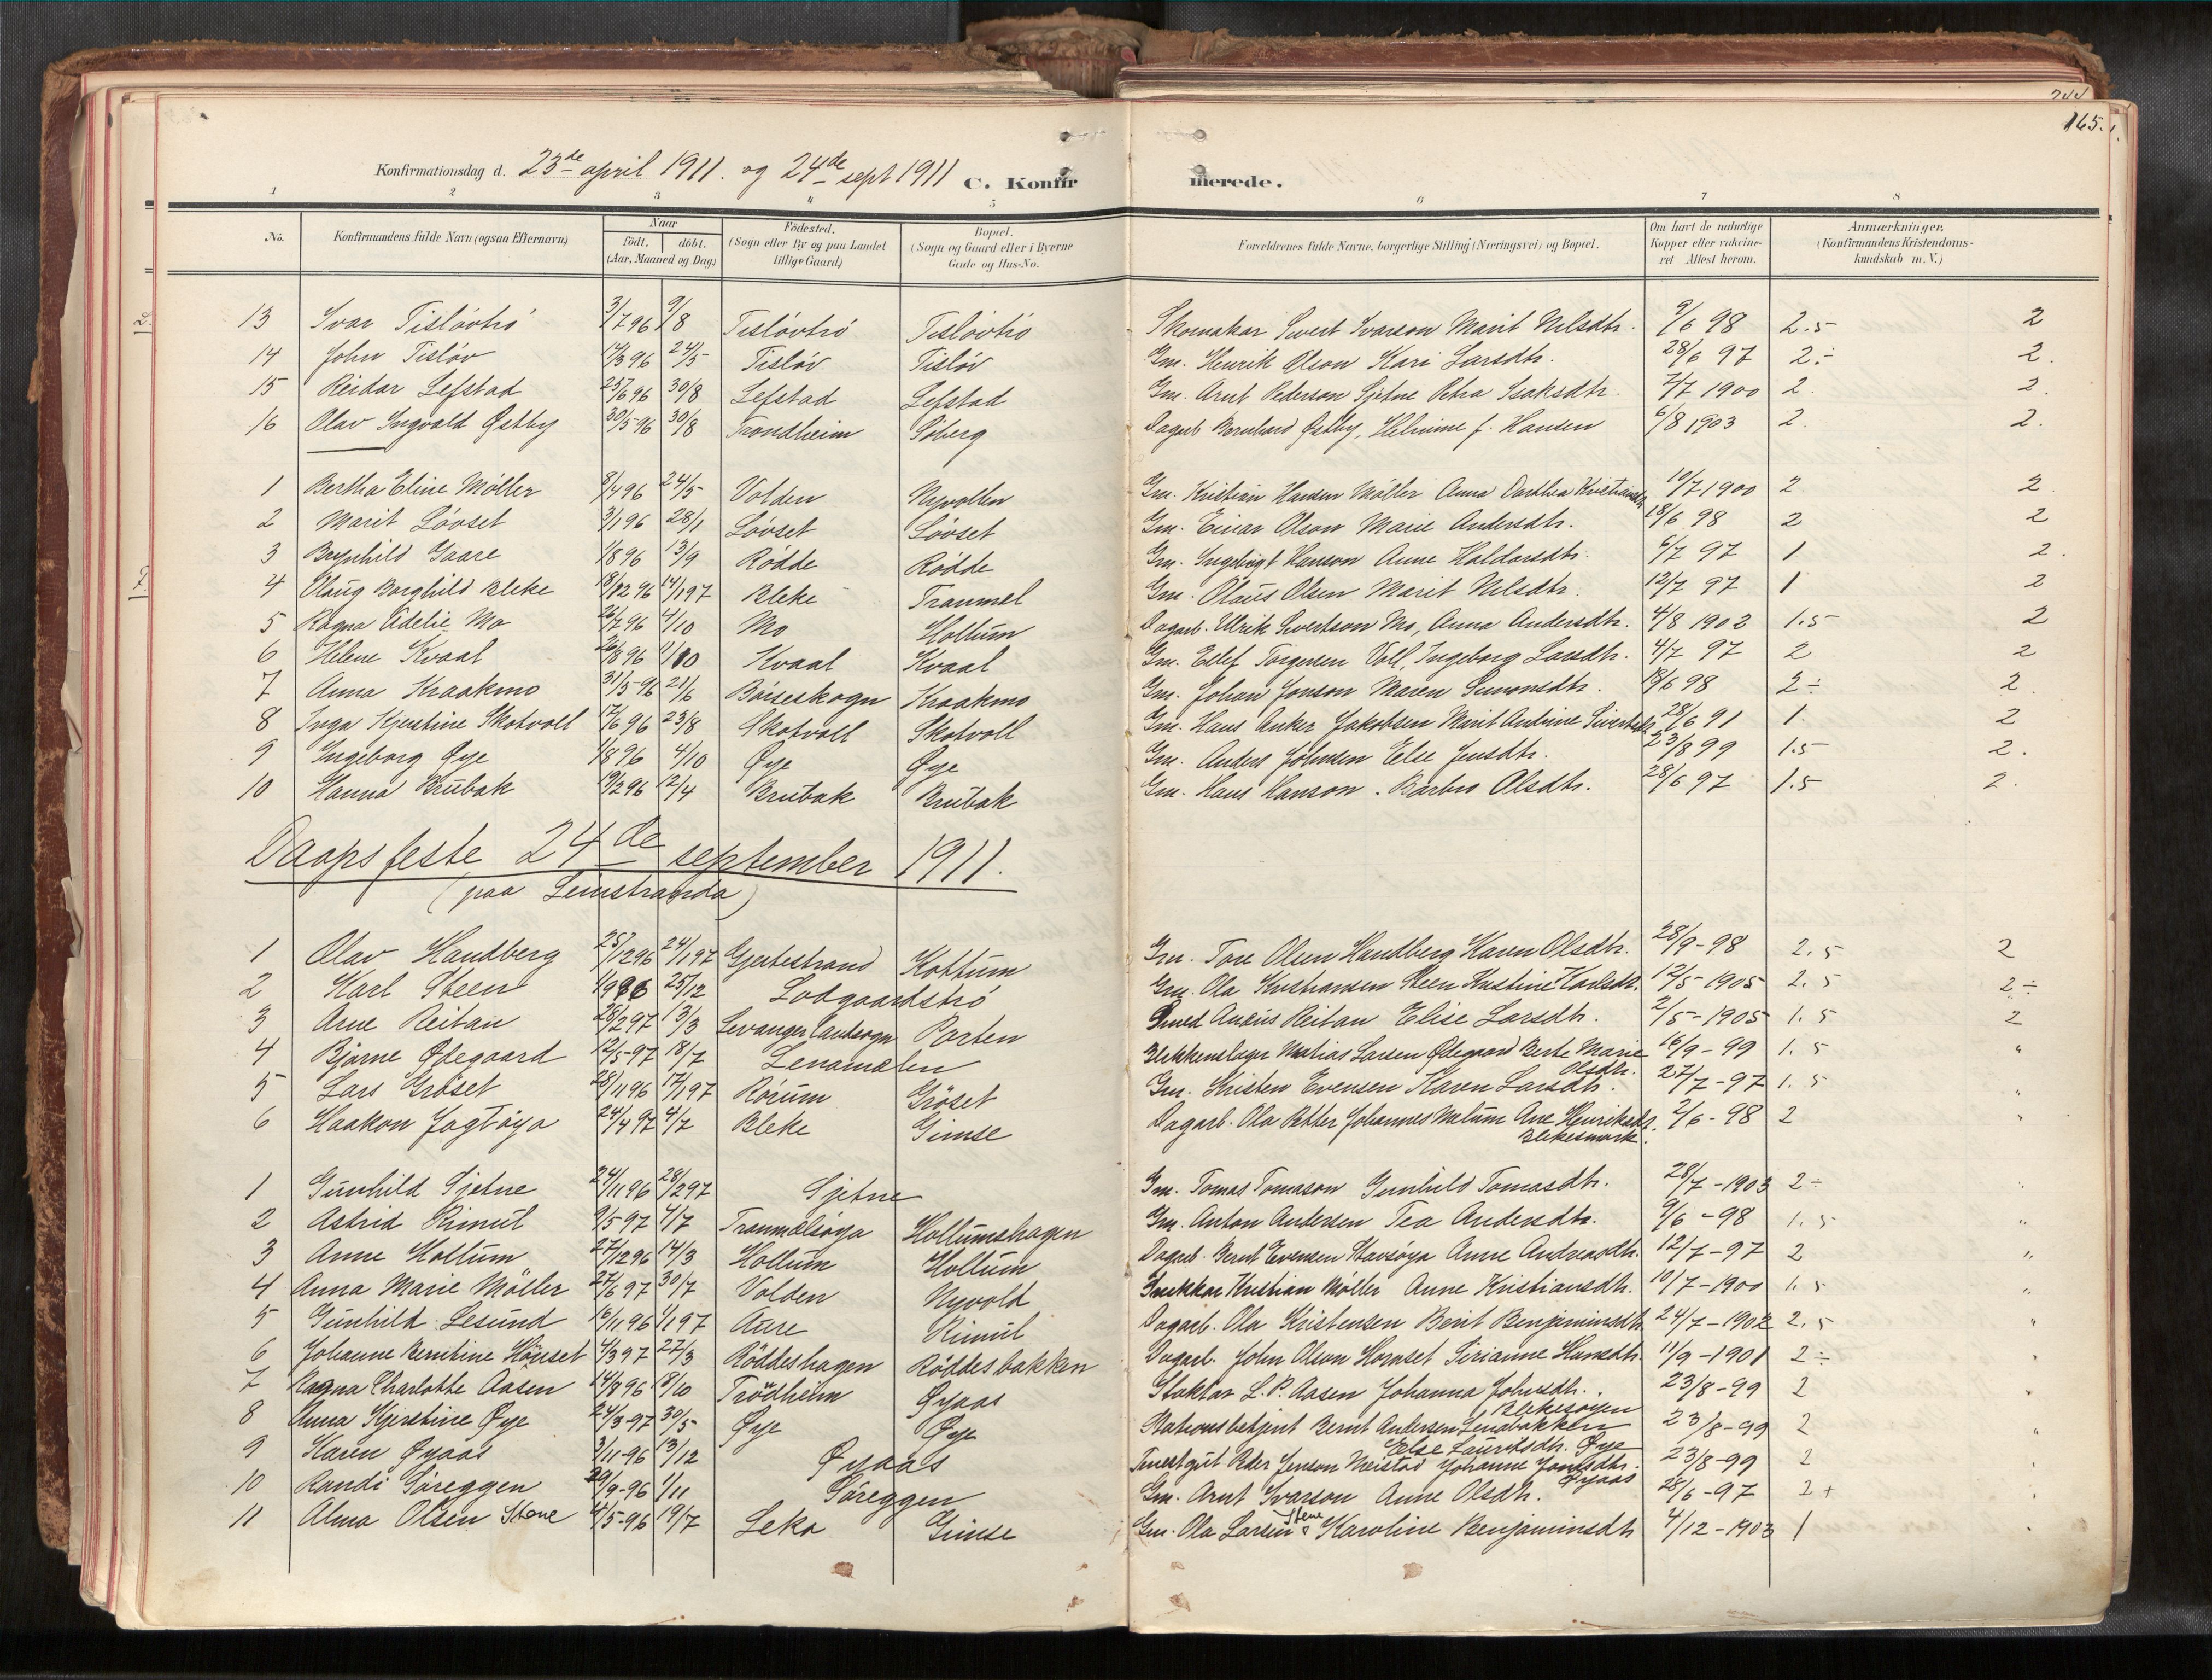 244
165.
Konfirmationsdag d. 23de april 1911. og 24de sept 1911 C. Konfirmerede.
1 2 3 4 5 6 7 8
No. Konfirmandens fulde Navn (ogsaa Efternavn) Naar født. døbt. (Aar, Maaned og Dag) Födested. (Sogn eller By og paa Landet tillige Gaard) Bopæl. (Sogn og Gaard eller i Byerne Gade og Hus-No. Forældrenes fulde Navne, borgerlige Stilling (Næringsvei) og Bopæl. Om havt de naturlige Kopper eller vakcineret Attest herom. Anmærkninger. (Konfirmandens Kristendomskundskab m. V.)
13 Ivar Tisløvtrø 3/7 96 9/8 Tisløvtrø Tisløvtrø Skomakar Sivert Ivarson Marit Nilsdtr. 9/6 98 2.5 2
14 John Tisløv 14/3 96 24/5 Tisløv Tisløv Gm. Henrik Olson Kari Larsdtr. 28/6 97 2÷ 2.
15 Reidar Lefstad 25/6 96 30/8 Lefstad Lefstad Gm. Arnt Pederson Sjetne Petra Isaksdtr. 7/7 1900 2. 2.
16 Olav Ingvald Østby 30/5-96 30/8 Trondheim Søberg Dagarb Bernhard Østby, Helmine f. Hansen 6/8 1903 2. 2.
1 Bertha Eline Möller 8/4 96 24/5 Volden Nyvollen Gm. Kristian Hansen Möller Anna Dorthea Kristiansdtr 10/7 1900 2 2.
2 Marit Løvset 3/1 96 28/1 Løvset Løvset Gm. Einar Olson Marie Andersdtr. 18/6 98 2 2
3 Brynhild Gaare 1/8 96 13/9 Rødde Rødde Gm. Ingebrigt Hanson Anne Haldorsdtr. 6/7 97 1 2.
4 Olaug Borghild Bleke 18/12 96 14/1 97 Bleke Tranmel Gm. Olaus Olsen Marit Nilsdtr. 12/7 97 1 2
5 Ragna Edelie Mo 26/7 96 4/10 Mo Hollum Dagarb. Ulrik Sivertson Mo, Anna Andersdtr. 4/8 1902 1.5 2
6 Helene Kvaal 26/8 96 11/10 Kvaal Kvaal Gm. Ellef Torgersen Voll, Ingeborg Larsdtr. 4/7 97 2 2
7 Anna Kraakmo 31/5-96 21/6 Børseskogn Kraakmo Gm. Johan Jonson Maren Simonsdtr. 18/6 98 2÷ 2.
8 Inga Kjerstine Skotvoll 17/6 96 23/8 Skotvoll Skotvoll Gm. Hans Anker Jakobsen Marit Andrine Sivertsdtr 28/6 91 1. 2
9 Ingeborg Øye 1/8 96 4/10 Øye Øye Gm. Anders Johnsen Else Jensdtr. 23/8 99 1.5 2.
10 Hanna Brubak 19/2 96 12/4 Brubak Brubak Gm. Hans Hanson. Barbro Olsdtr. 28/6 97 1.5 2.
Daapsfeste 24de september 1911.
(paa Leinstranda)
1 Olav Handberg 25/12 96 24/1 97 Gjertestrand Kottum Gm. Tore Olsen Handberg Karen Olsdtr. 28/9-98 2.5 2
2 Karl Steen 1/9 96 25/12 Lodgaardstrø Gm. Ola Kristiansen Steen Kristine Karlsdtr. 12/5-1905 2.5 2÷
3 Arne Reitan 28/2 97 13/3 Levanger landsogn Parten Smed Anæus Reitan Elise Larsdtr. 2/5-1905 1.5 2
4 Bjarne Ødegaard 12/5-97 18/7 Lenamælen Blikkenslager Matias Larsen Ødegaard Berte Marie Olsdtr. 16/9-99 1.5 "
5 Lars Grøset 28/11 96 17/1 97 Rørum Grøset Gm. Kristen Evensen Karen Larsdtr. 27/7-97 1.5 "
6 Haakon Jagtøyo 24/4 97 4/7 Bleke Gimse Dagarb. Ola Petter Johannes Malum Ane Henriksdtr. Blekesmark. 2/6-98 2 "
1 Gunhild Sjetne 24/11 96 28/2 97 Sjetne Gm. Tomas Tomason Gunhild Tomasdtr. 28/7-1903 2÷ "
2 Astrid Rimul 9/5 97 4/7 Tranmelsøya Hollumshagen Gm. Anton Andersen Tea Andersdtr. 9/6-98 1.5 "
3 Anne Hollum 27/12 96 14/3 Hollum Hollum Dagarb. Bernt Evensen Stavsøya Anne Andreasdtr. 12/7-97 2 "
4 Anna Marie Möller 27/6 97 30/7 Volden Nyvold Snekkar Kristian Møller Anne Kristiansdtr. 10/7-1900 1.5 "
5 Gunhild Lesund 16/11 96 1/1 97 Aure Rimul Dagarb. Ola Kristensen Berit Benjaminsdtr. 24/7-1902 2.5 "
6 Johanne Berntine Hönset 4/3 97 27/3 Røddeshagen Røddesbakken Dagarb. John Olson Hornset Sirianne Hansdtr. 11/9-1901 2÷ "
7 Ragna Charlotte Aasen 14/8 96 18/10 Trondheim Øyaas Slaktar L. P. Aasen Johanna Johnsdtr. 23/8-99 2 "
8 Anna Kjerstine Øye 24/3-97 30/5 Øye Øye Stationsbetjent Bernt Andersen Lenabakken Blekesøyen Else Lauritsdtr. Øye 23/8-99 2 "
9 Karen Øyaas 3/11-96 13/12 Øyaas Tenestgut Peder Jenson Meistad Johanne Jonsdtr. Øyaas 23/8-99 2
10 Randi Søreggen 29/9-96 1/11 Søreggen Gm. Arnt Ivarson Anne Olsdtr. 28/6-97 2+ "
11 Alma Olsen Stene 4/5-96 19/7 Leka Gimse Gm. Ola Larsen Stene & Karoline Benjaminsdtr 4/12-1903 1 "